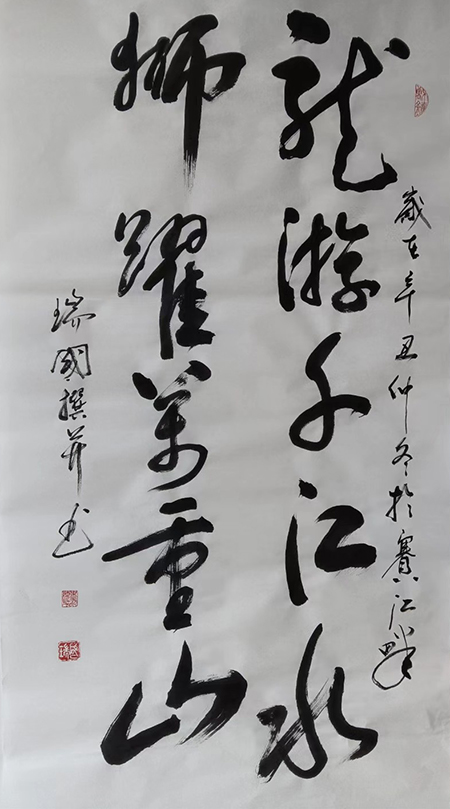 龍游千江水
獅躍萬重山
歲在辛丑仲冬於賽江畔
瑞國撰并书